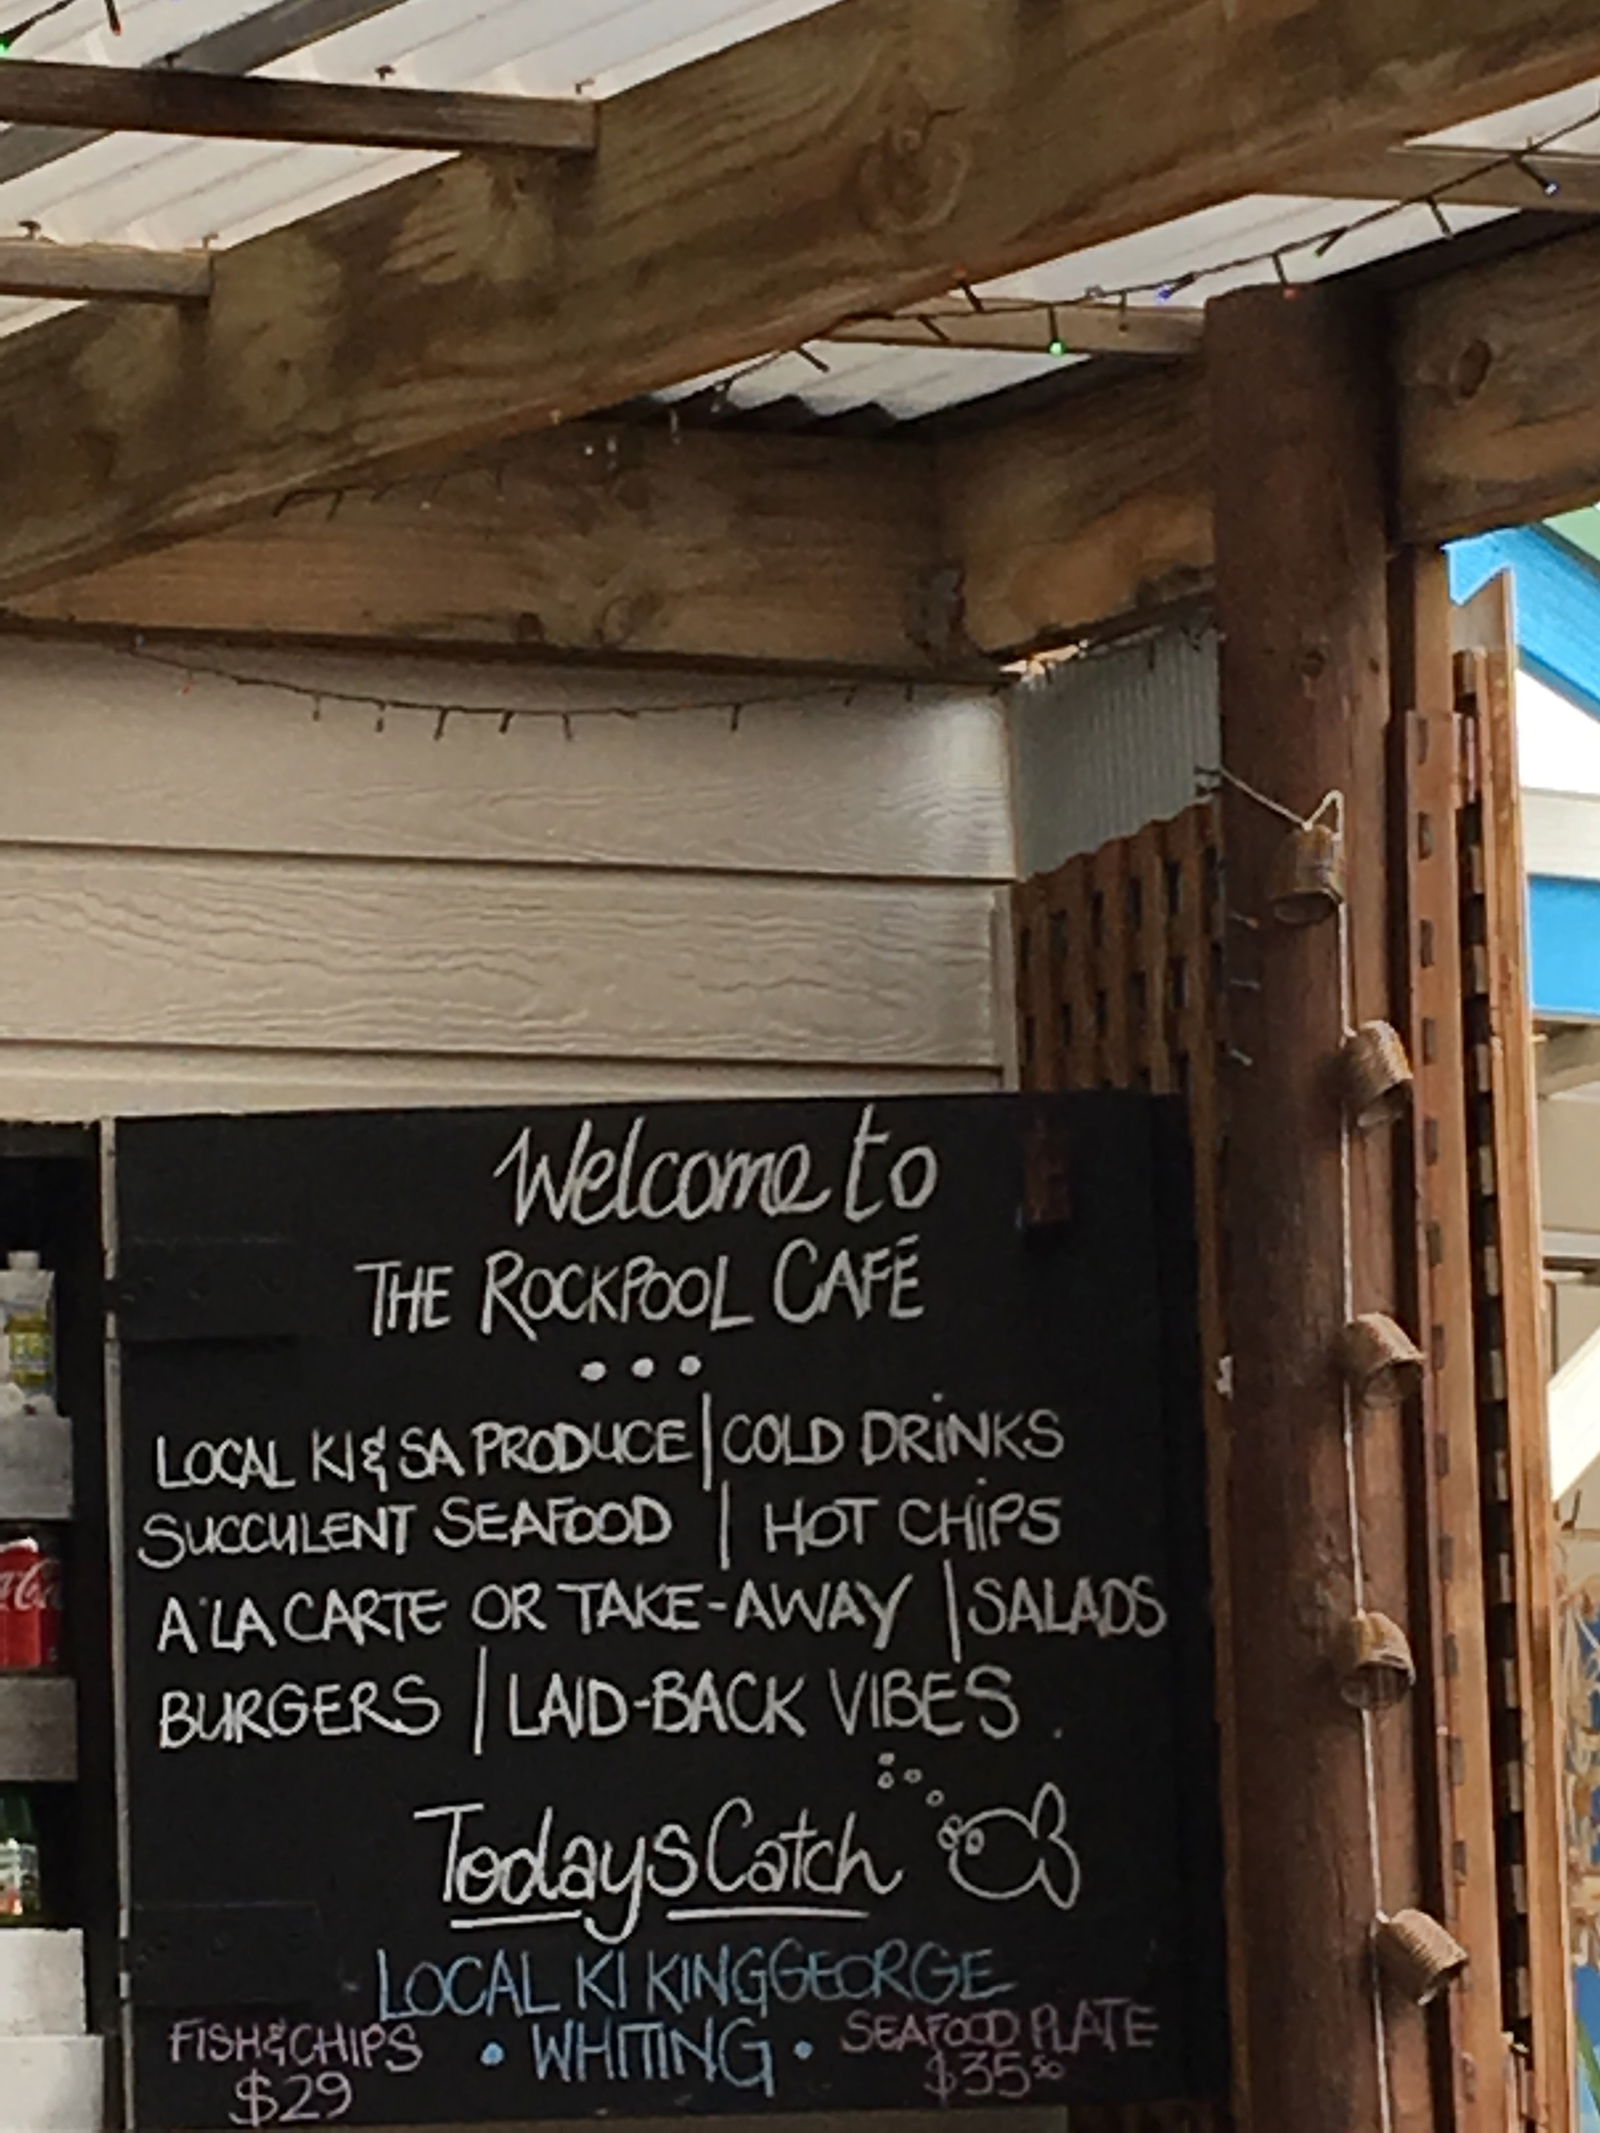 Welcome to
THE ROCKPOOL CAFÉ
• • •
LOCAL KI & SA PRODUCE | COLD DRINKS
SUCCULENT SEAFOOD | HOT CHIPS
A'LA CARTE OR TAKE-AWAY | SALADS
BURGERS | LAID-BACK VIBES
Todays Catch
LOCAL KI KING GEORGE
• WHITING •
FISH & CHIPS
$29
SEAFOOD PLATE
$35.50